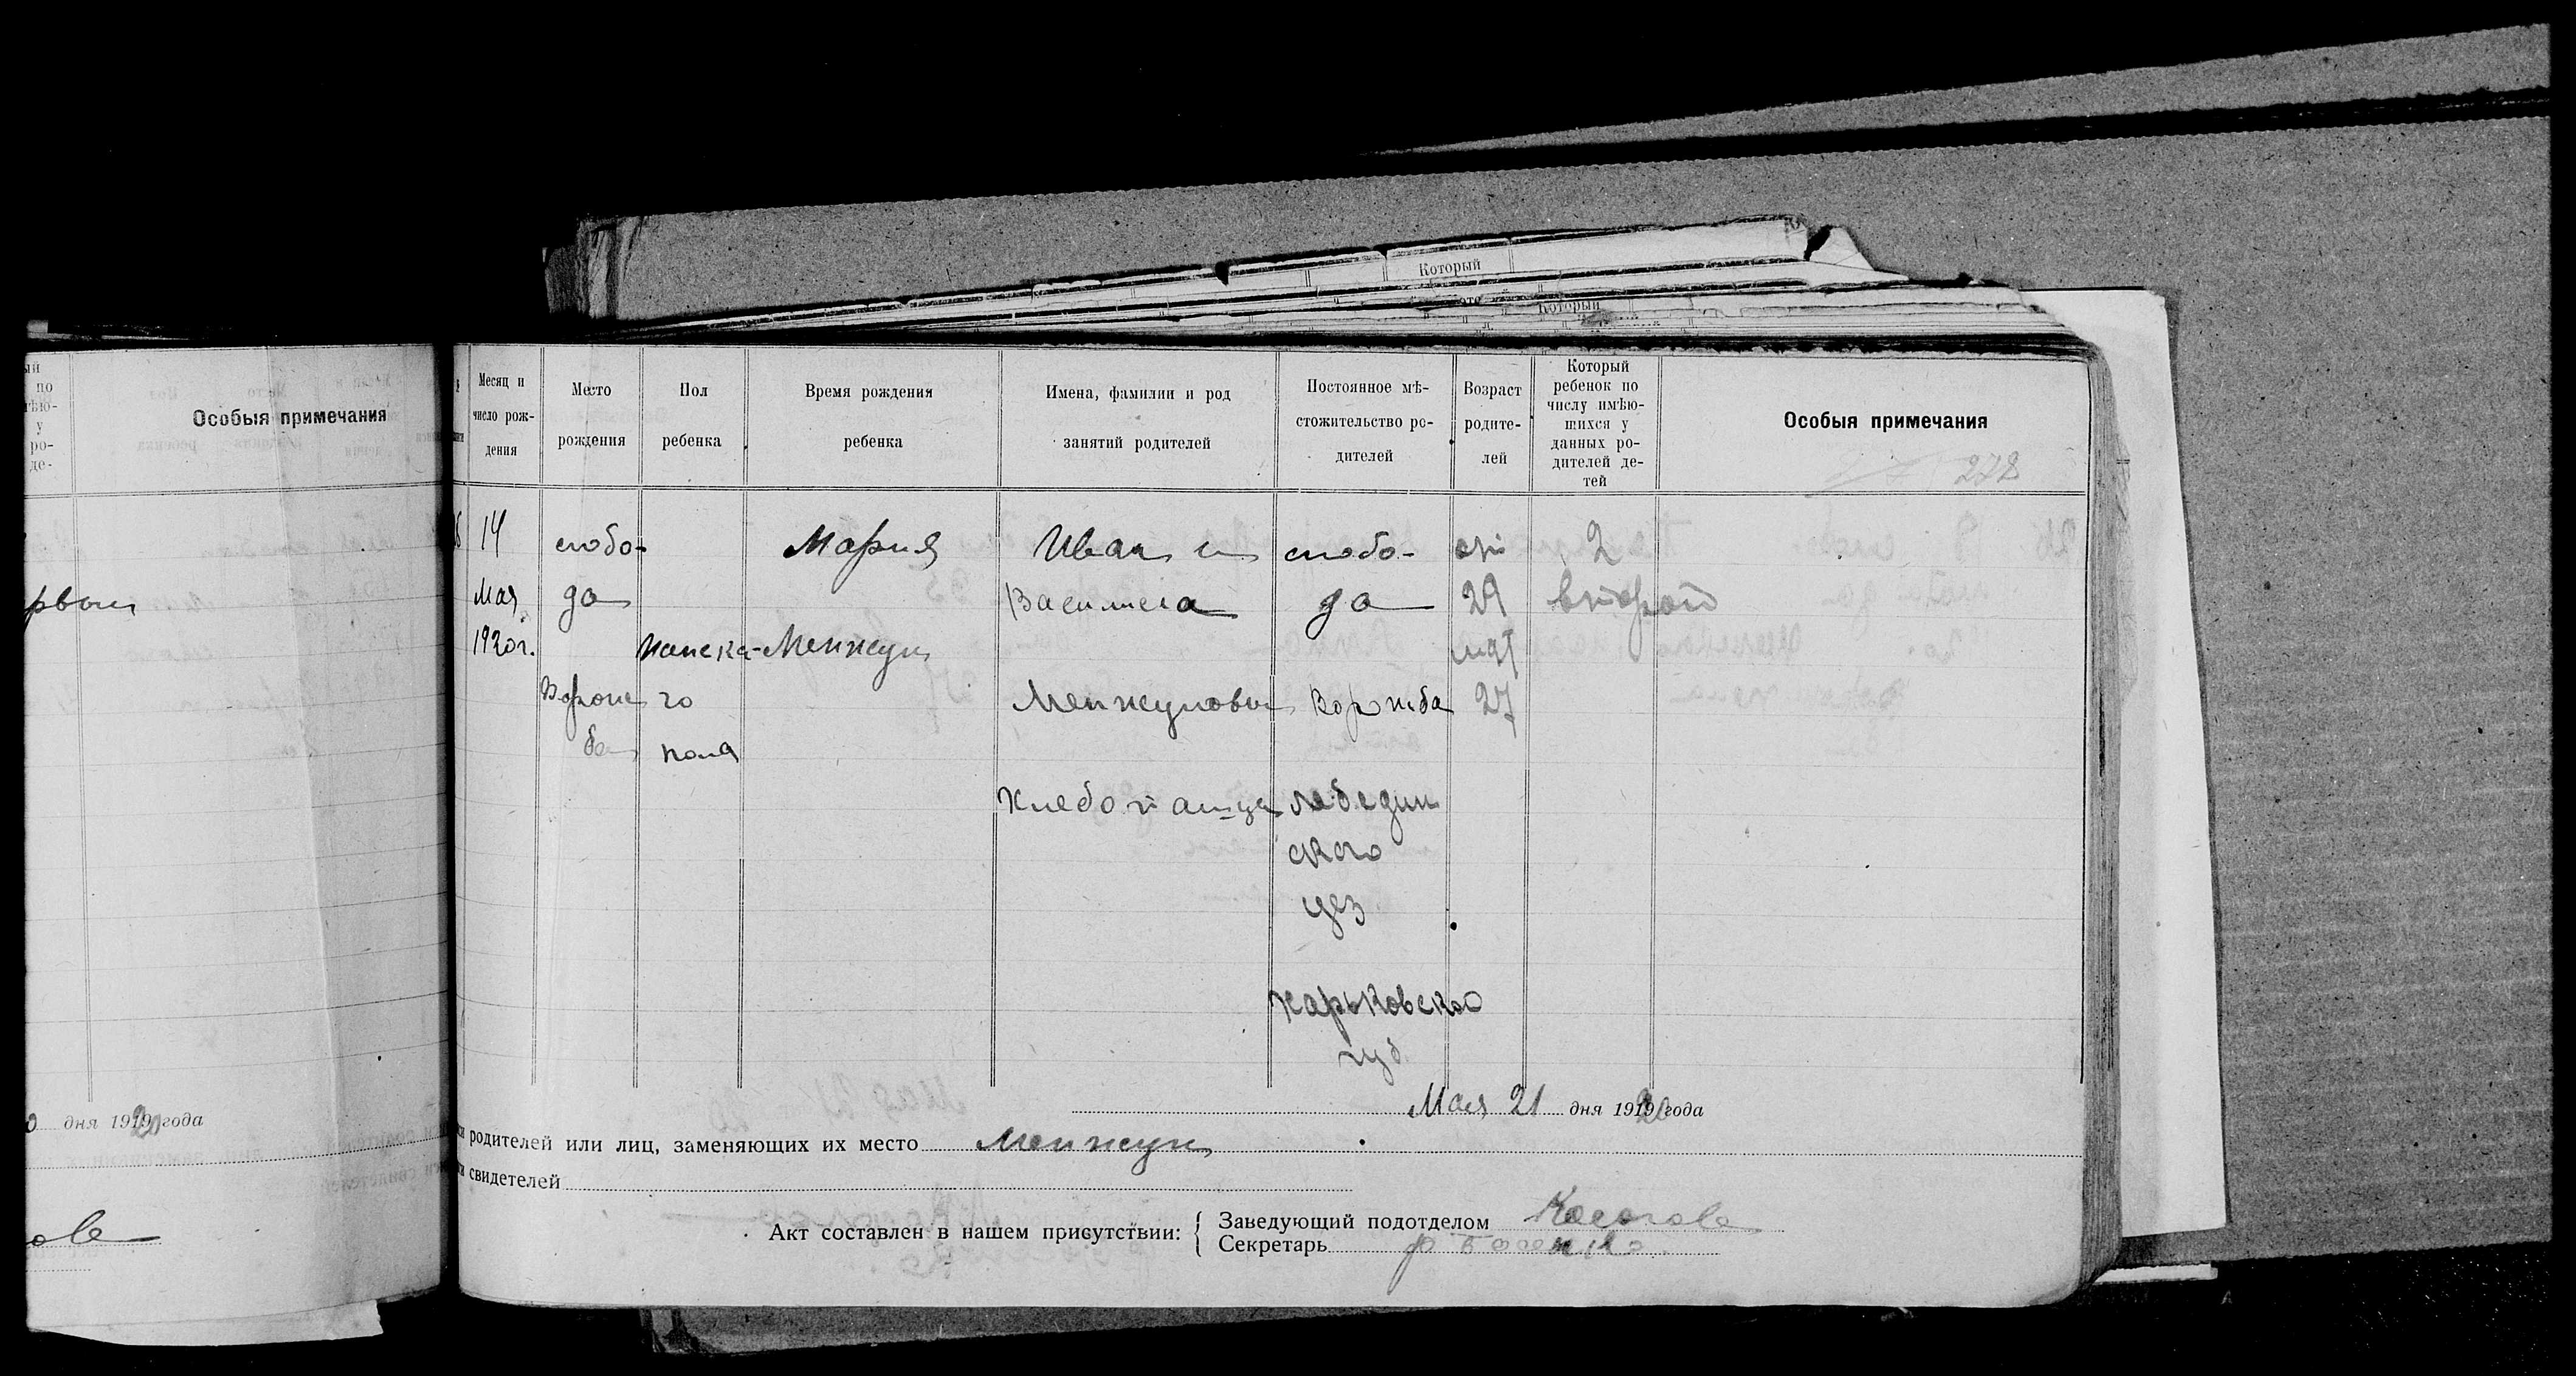 Который
Который
ый
по
ѣю-
у
ро-
де-
Особыя примечания
рвый
дня 1919 20 года
ова
Месяц и
число рож-
дения
Место
рождения
Пол
ребенка
Время рождения
ребенка
Имена, фамилии и род
занятий родителей
Постоянное мѣ-
стожительство ро-
дителей
Возраст
родите-
лей
Который
ребенок по
числу имѣю-
шихся у
данных ро-
дителей де-
тей
Особыя примечания
272
14
Мая
1920г.
слобо-
да
Ворож
ба
женска-
го
пола
Мария
Менжун
Иван и
Василиса
Менжуновы
Хлебопашцы
слобо-
да
Ворожба
лебедин
ского
уез
харьковской
губ.
отц
29
мат
27
2
второй
Мая 21 дня 1919 20 года
родителей или лиц, заменяющих их место Менжун
свидетелей
Акт составлен в нашем присутствии:
Заведующий подотделом
Секретарь